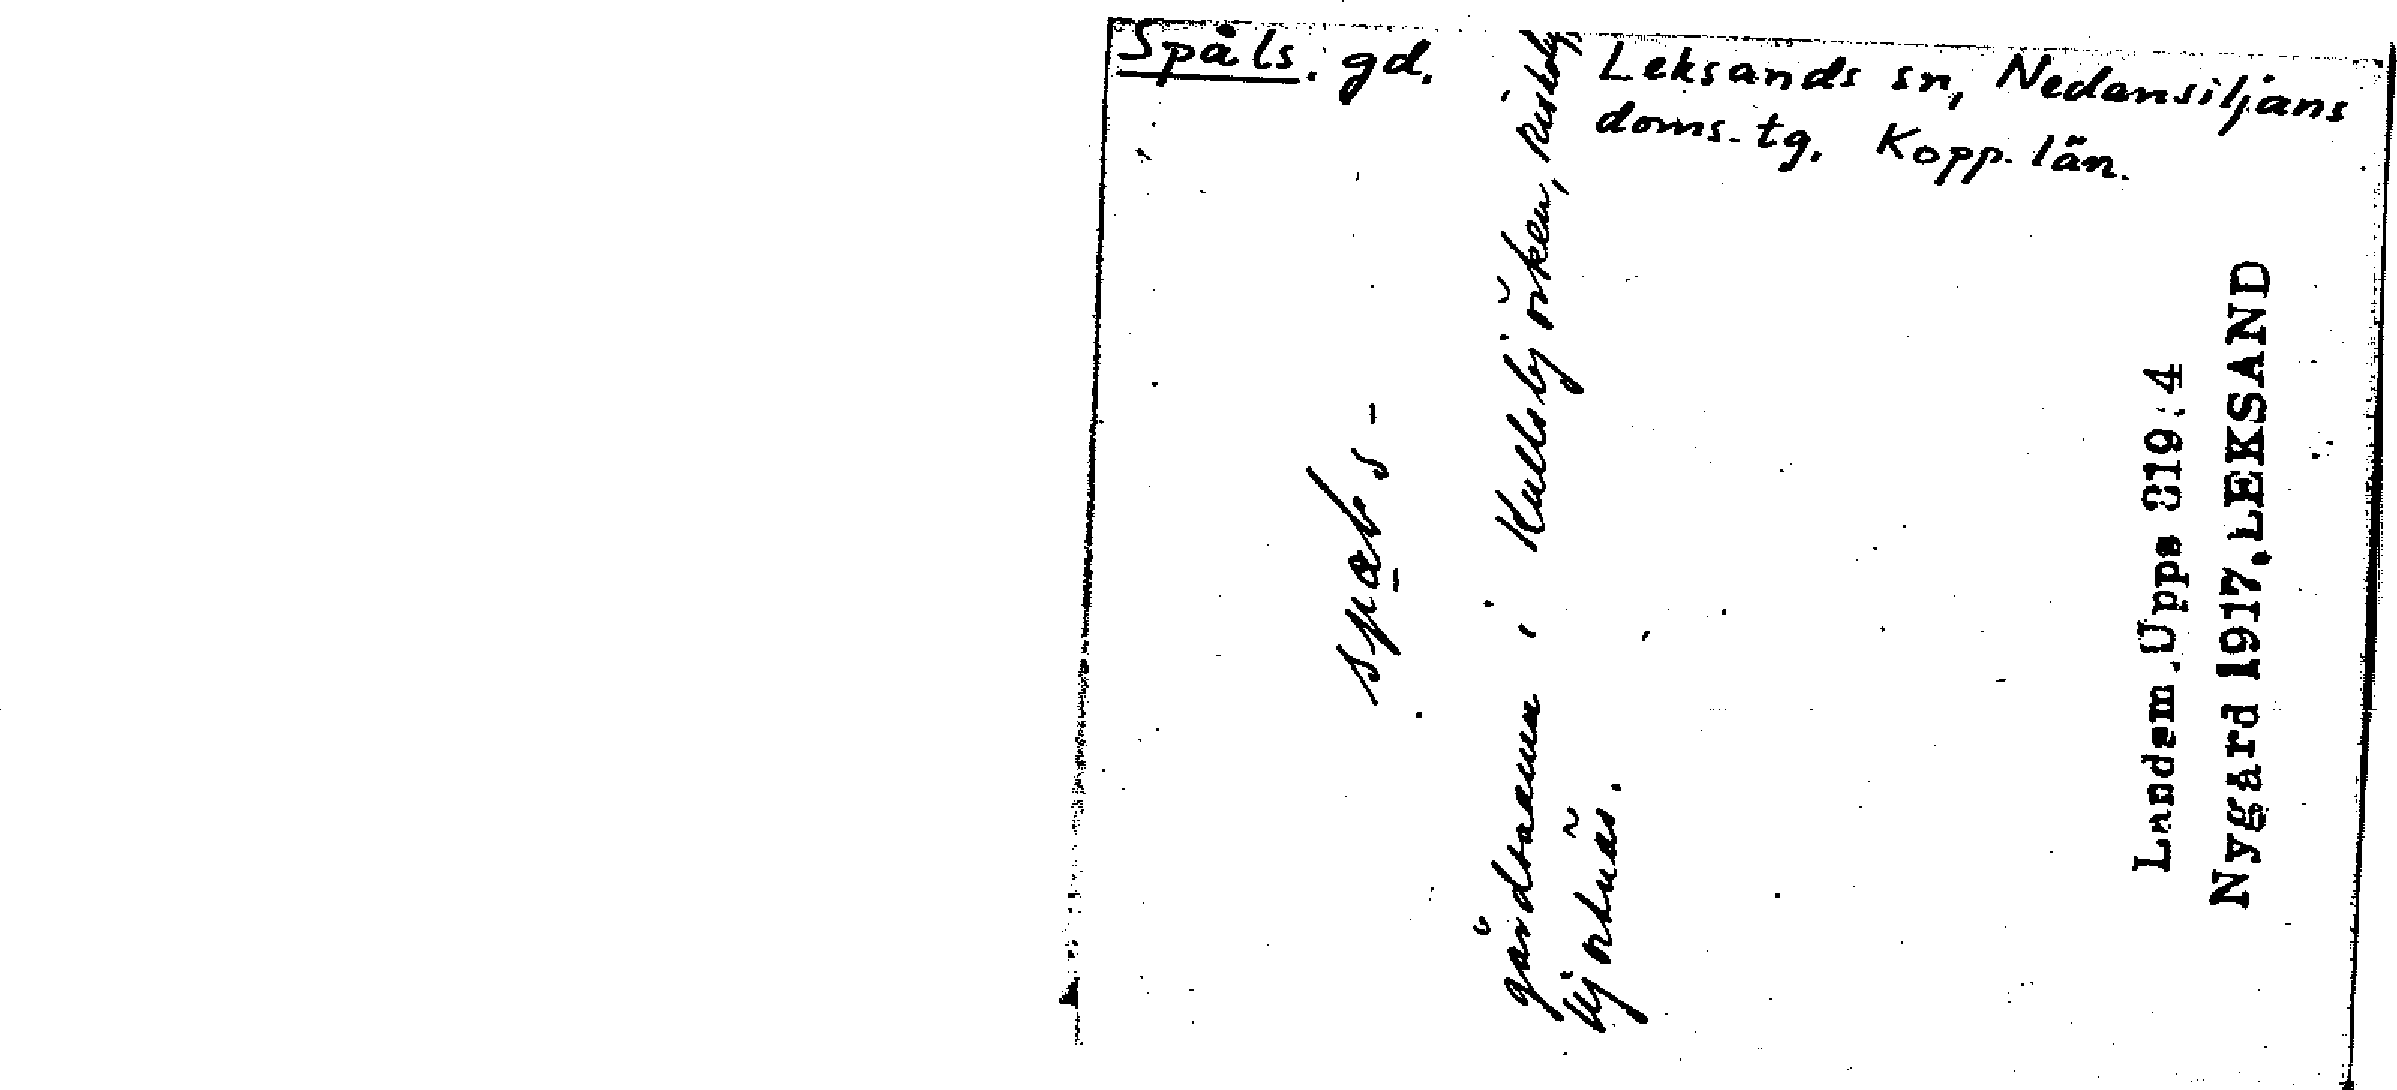 Spåls. gd.
Leksands sn, Nedansiljans
doms. tg. Kopp. län.
gårdsnamn i Kullsbjörken,
Björknäs.
Landsm. Upps 319:4
Nygård 1917, LEKSAND